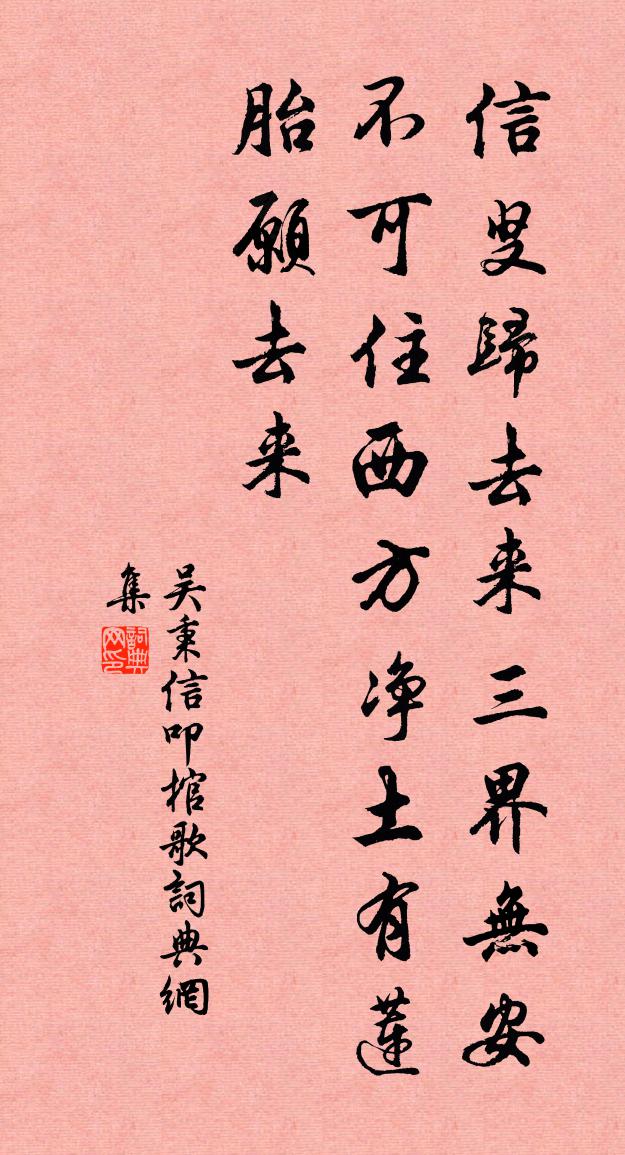 信叟歸去来三界無安
不可住西方净土有蓮
胎願去来
吴秉信叩棺歌詞典網
集
詞典網印